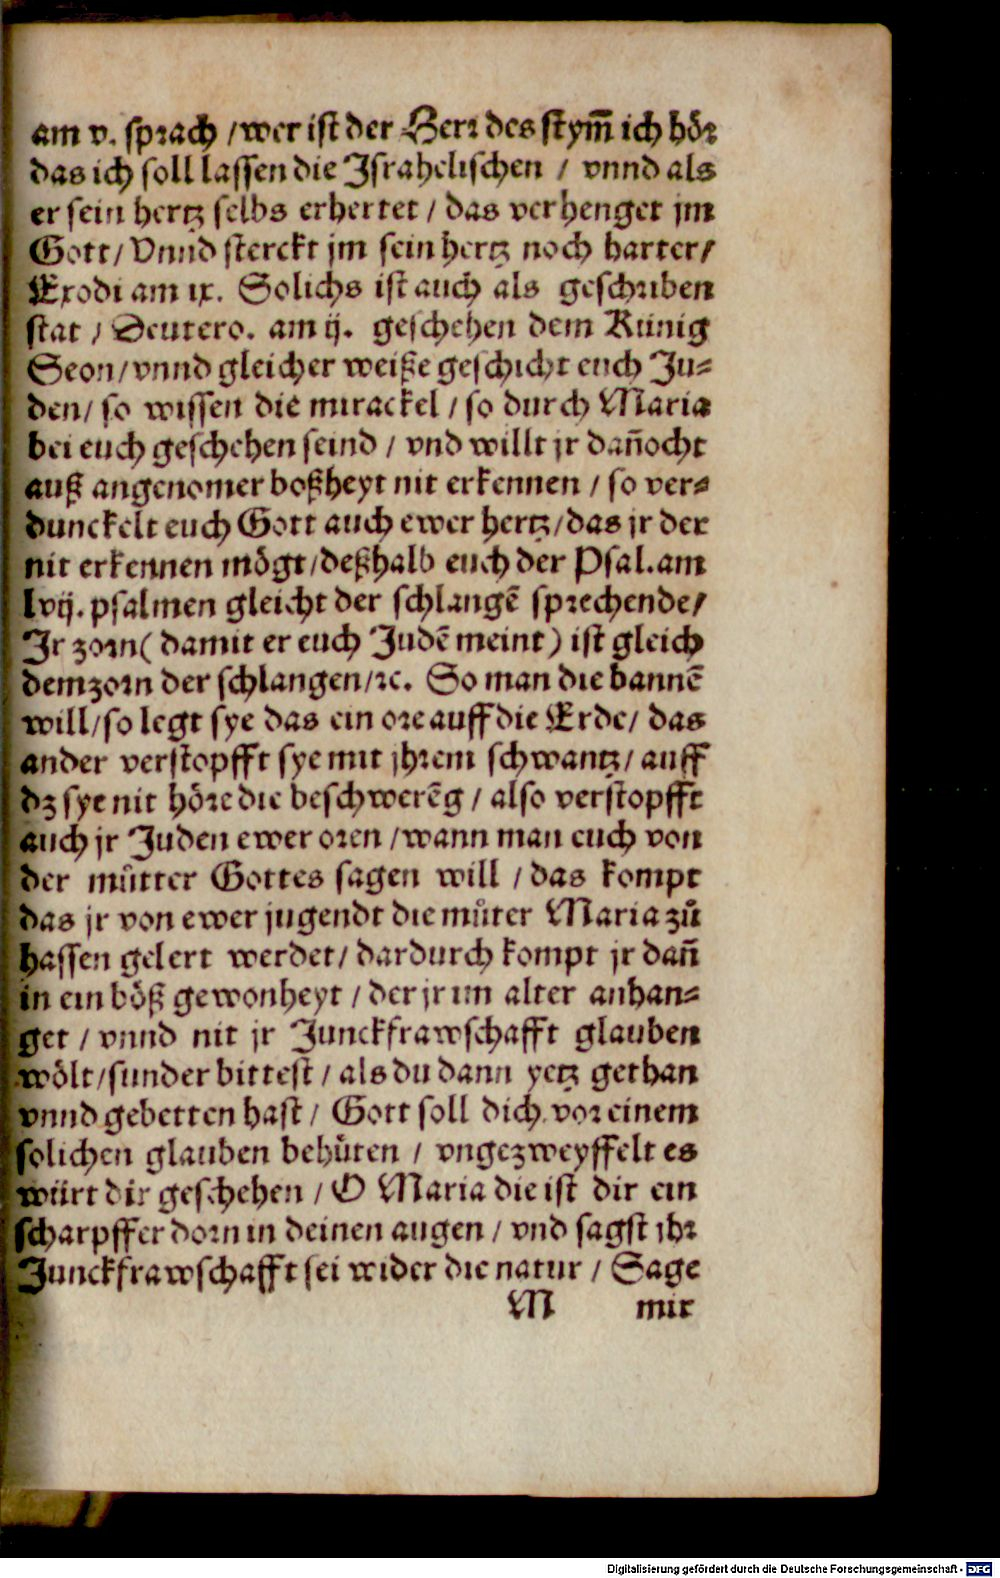 am v. sprach / wer ist der Herr des stym̃ ich hör
das ich soll lassen die Israhelischen / vnnd als
er sein hertz selbs erhertet / das verhenget jm
Gott / Vnnd sterckt jm sein hertz noch harter /
Exodi am ix. Solichs ist auch als geschriben
stat / Deutero. am ij. geschehen dem Künig
Seon / vnnd gleicher weiße geschicht euch Ju⸗
den / so wissen die mirackel / so durch Maria
bei euch geschehen seind / vnd willt jr dañocht
auß angenomer boßheyt nit erkennen / so ver⸗
dunckelt euch Gott auch ewer hertz / das jr der
nit erkennen mögt / deßhalb euch der Psal. am
lvij. psalmen gleicht der schlangẽ sprechende /
Jr zorn ( damit er euch Judẽ meint ) ist gleich
dem zorn der schlangen / ꝛc. So man die bannẽ
will / so legt sye das ein ore auff die Erde / das
ander verstopfft sye mit jhrem schwantz / auff
dz sye nit höre die beschwerẽg / also verstopfft
auch jr Juden ewer oren / wann man euch von
der mütter Gottes sagen will / das kompt
das jr von ewer jugendt die můter Maria zů
hassen gelert werdet / dardurch kompt jr dañ
in ein böß gewonheyt / der jr im alter anhan⸗
get / vnnd nit jr Junckfrawschafft glauben
wölt / sunder bittest / als du dann yetz gethan
vnnd gebetten hast / Gott soll dich vor einem
solichen glauben behüten / vngezweyffelt es
würt dir geschehen / O Maria die ist dir ein
scharpffer dorn in deinen augen / vnd sagst jhr
Junckfrawschafft sei wider die natur / Sage
M mir
Digitalisierung gefördert durch die Deutsche Forschungsgemeinschaft - DFG